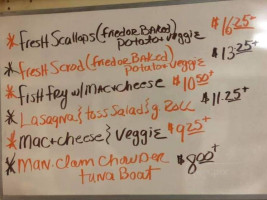 * Fresh Scallops (fried or Baked) $16.25+
potato + veggie
* Fresh Scrod (fried or Baked) $13.25+
potato + veggie
* Fish fry w/ Mac + cheese $10.50+
* Lasagna } toss Salad } g. Roll $11.25+
* Mac + cheese } Veggie $9.25+
* Man. Clam Chowder $8.00+
tuna Boat